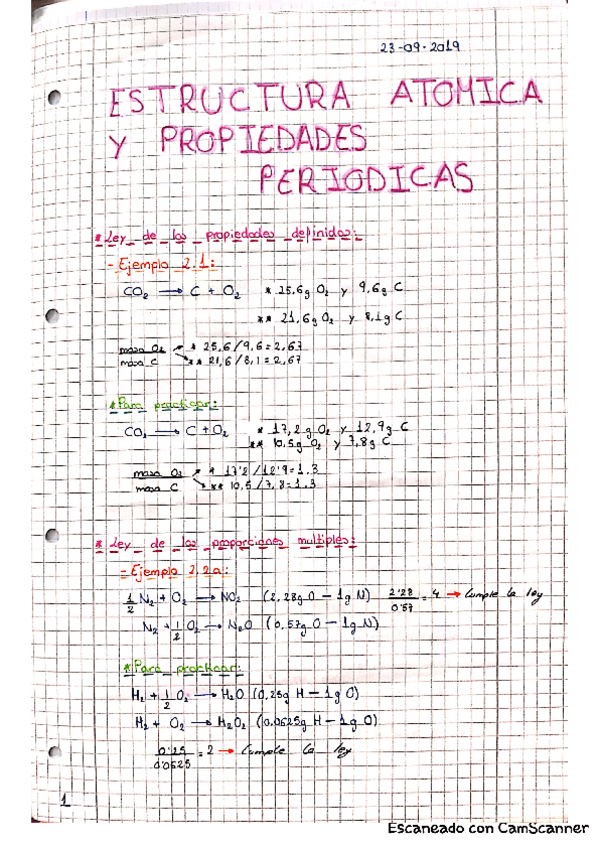 23-09-2019
ESTRUCTURA ATOMICA
Y PROPIEDADES
PERIODICAS
* Ley de las propiedades definidas:
- Ejemplo 2.1:
CO₂ → C + O₂ * 25,6g O₂ y 9,6g C
** 21,6g O₂ y 8,1g C
masa O₂ * 25,6/9,6=2,67
masa C ** 21,6/8,1=2,67
* Para practicar:
CO₂ → C + O₂ * 17,2g O₂ y 12,9g C
** 10,5g O₂ y 7,8g C
masa O₂ * 17'2/12'9=1.3
masa C ** 10,5/7,8=1.3
* Ley de las proporciones multiples:
- Ejemplo 2.2a:
1/2 N₂ + O₂ → NO₂ (2,28g O - 1g N) 2'28/0'57 = 4 → Cumple la ley
N₂ + 1/2 O₂ → N₂O (0,57g O - 1g N)
* Para practicar:
H₂ + 1/2 O₂ → H₂O (0,25g H - 1g O)
H₂ + O₂ → H₂O₂ (0,0625g H - 1g O)
0'25/0'0625 = 2 → Cumple la ley
1
Escaneado con CamScanner